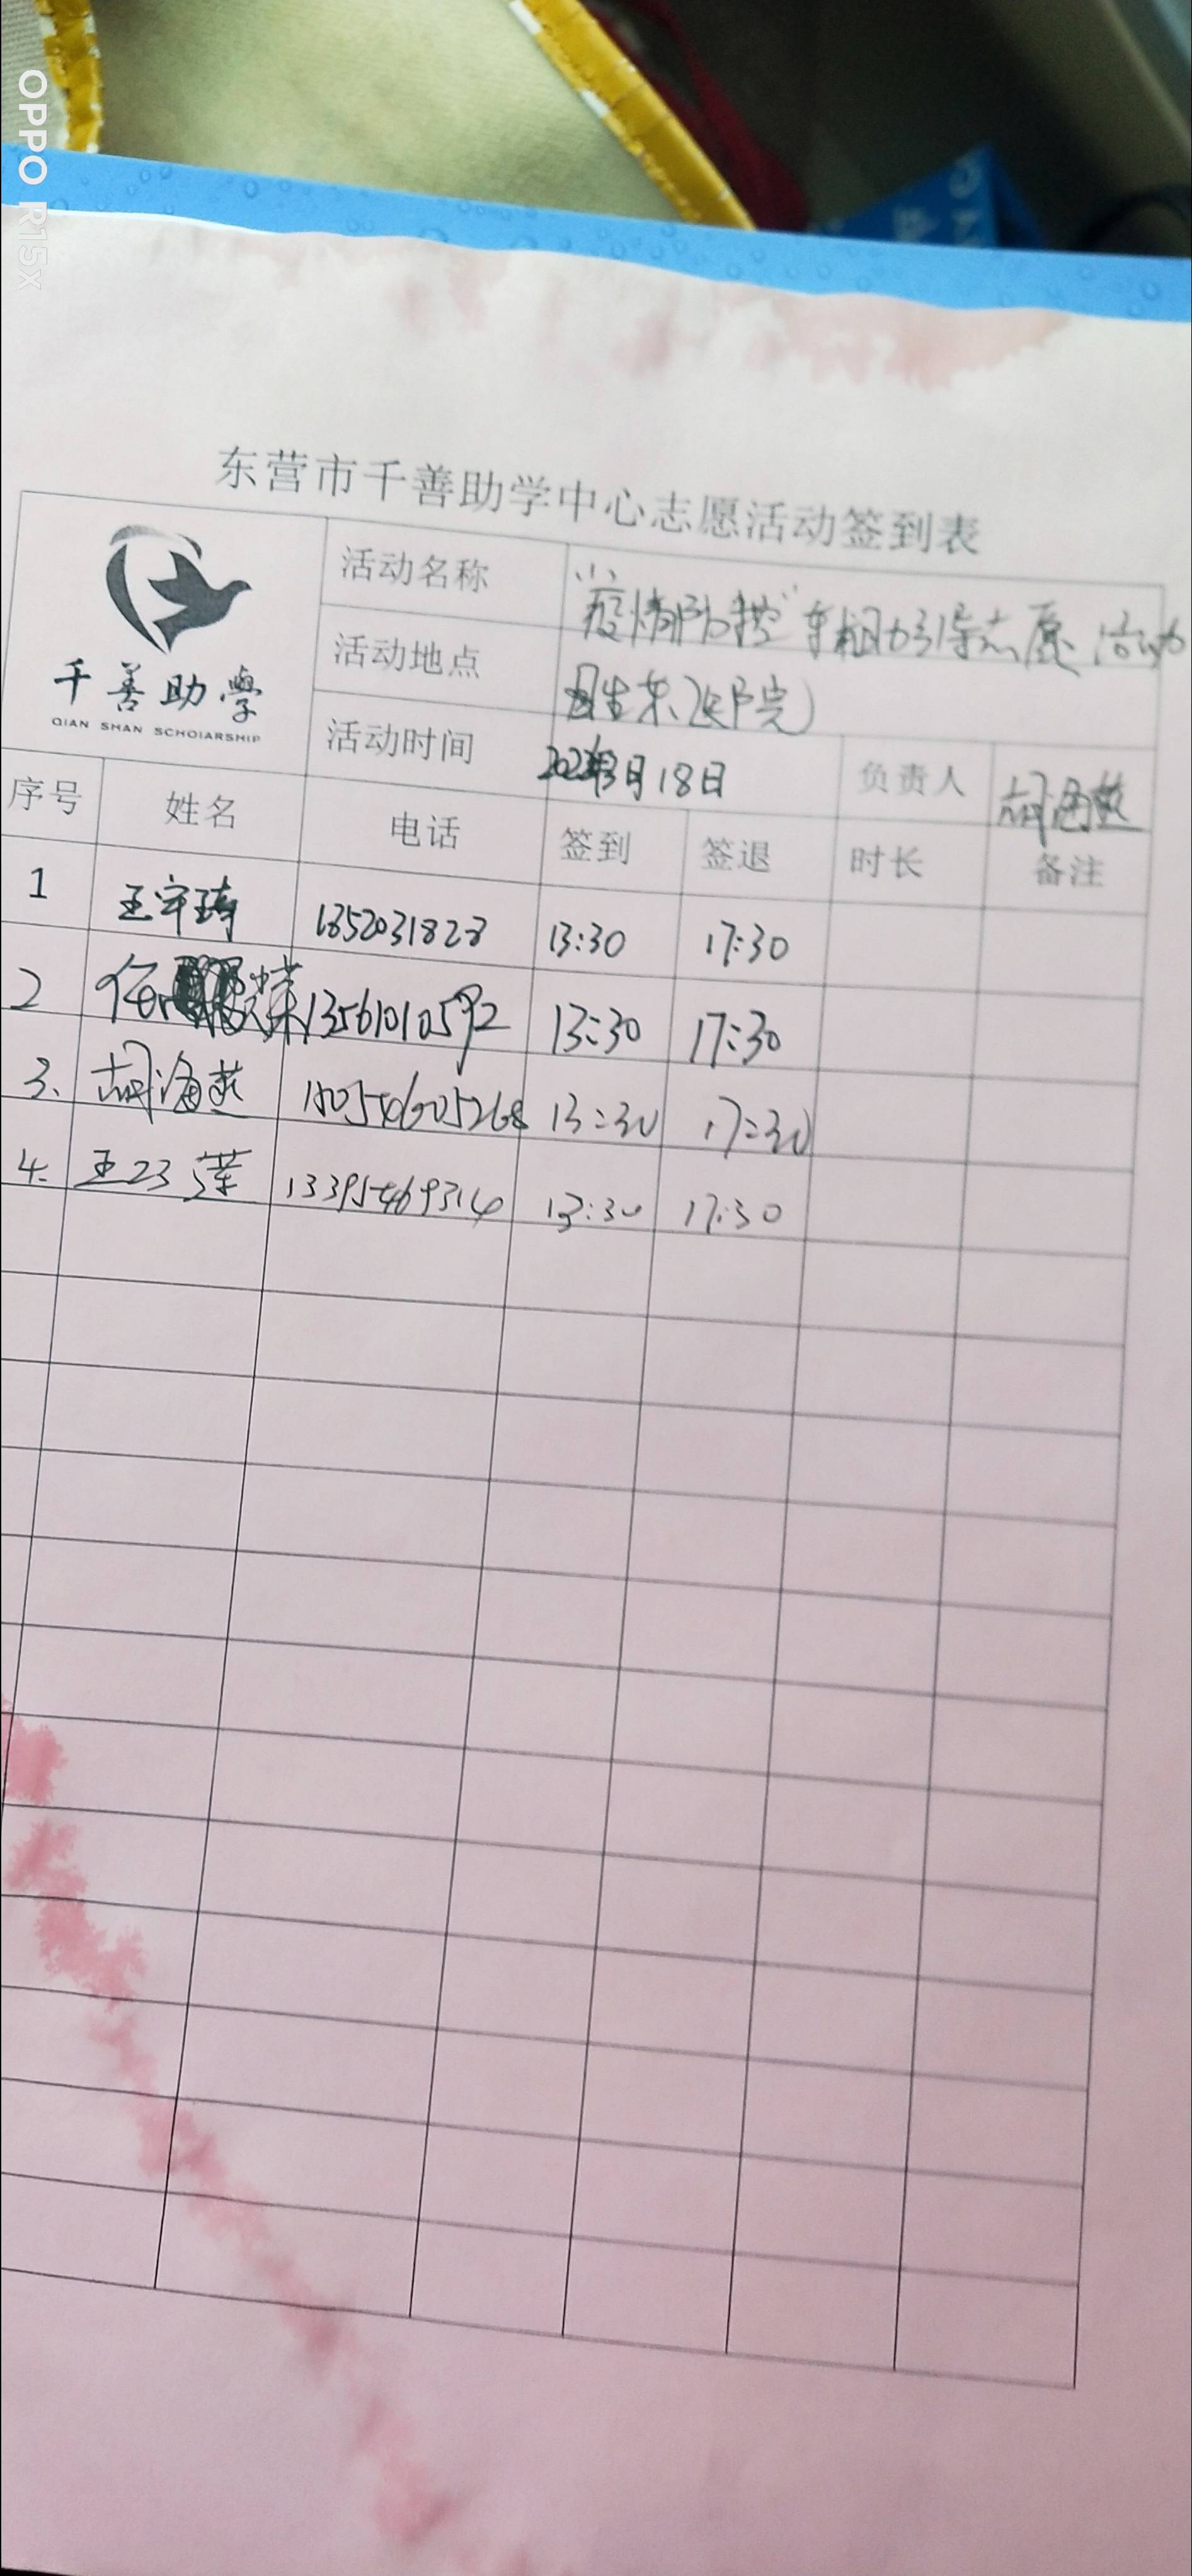 OPPO R15x
东营市千善助学中心志愿活动签到表
千善助學
QIAN SHAN SCHOlARSHIP
活动名称 "疫情防控" 志愿活动
活动地点
活动时间 3月18日 负责人 胡海燕
序号 姓名 电话 签到 签退 时长 备注
1 王宇琦 1352031828 13:30 17:30
2 13561010592 13:30 17:30
3. 胡海燕 13:30 17:30
4. 王 13395469314 13:30 17:30